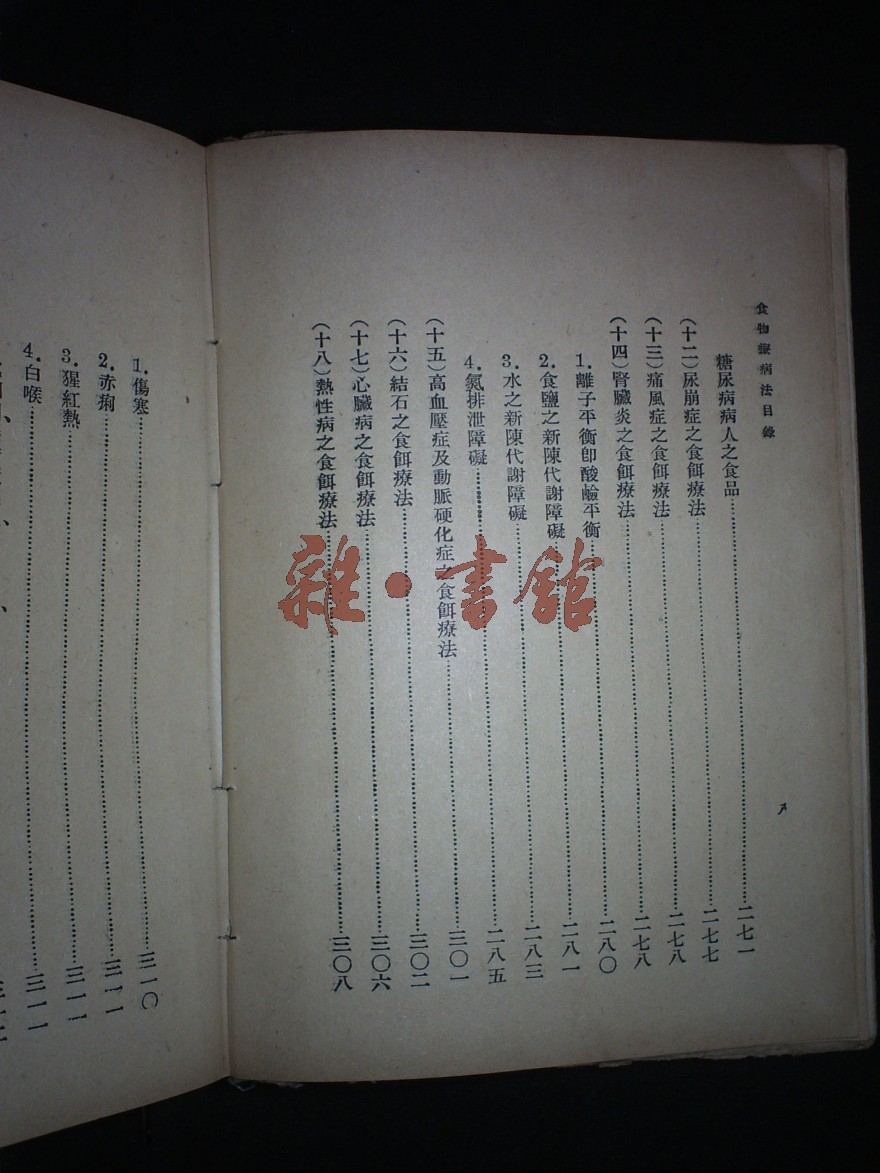 食物療病法目錄
糖尿病病人之食品……二七一
(十二)尿崩症之食餌療法……二七七
(十三)痛風症之食餌療法……二七八
(十四)腎臟炎之食餌療法……二七八
1.離子平衡即酸鹼平衡……二八〇
2.食鹽之新陳代謝障礙……二八一
3.水之新陳代謝障礙……二八三
4.氮排泄障礙……二八五
(十五)高血壓症及動脈硬化症之食餌療法……三〇一
(十六)結石之食餌療法……三〇二
(十七)心臟病之食餌療法……三〇六
(十八)熱性病之食餌療法……三〇八
1.傷寒……三一〇
2.赤痢……三一一
3.猩紅熱……三一一
4.白喉……三一一
雜·書館